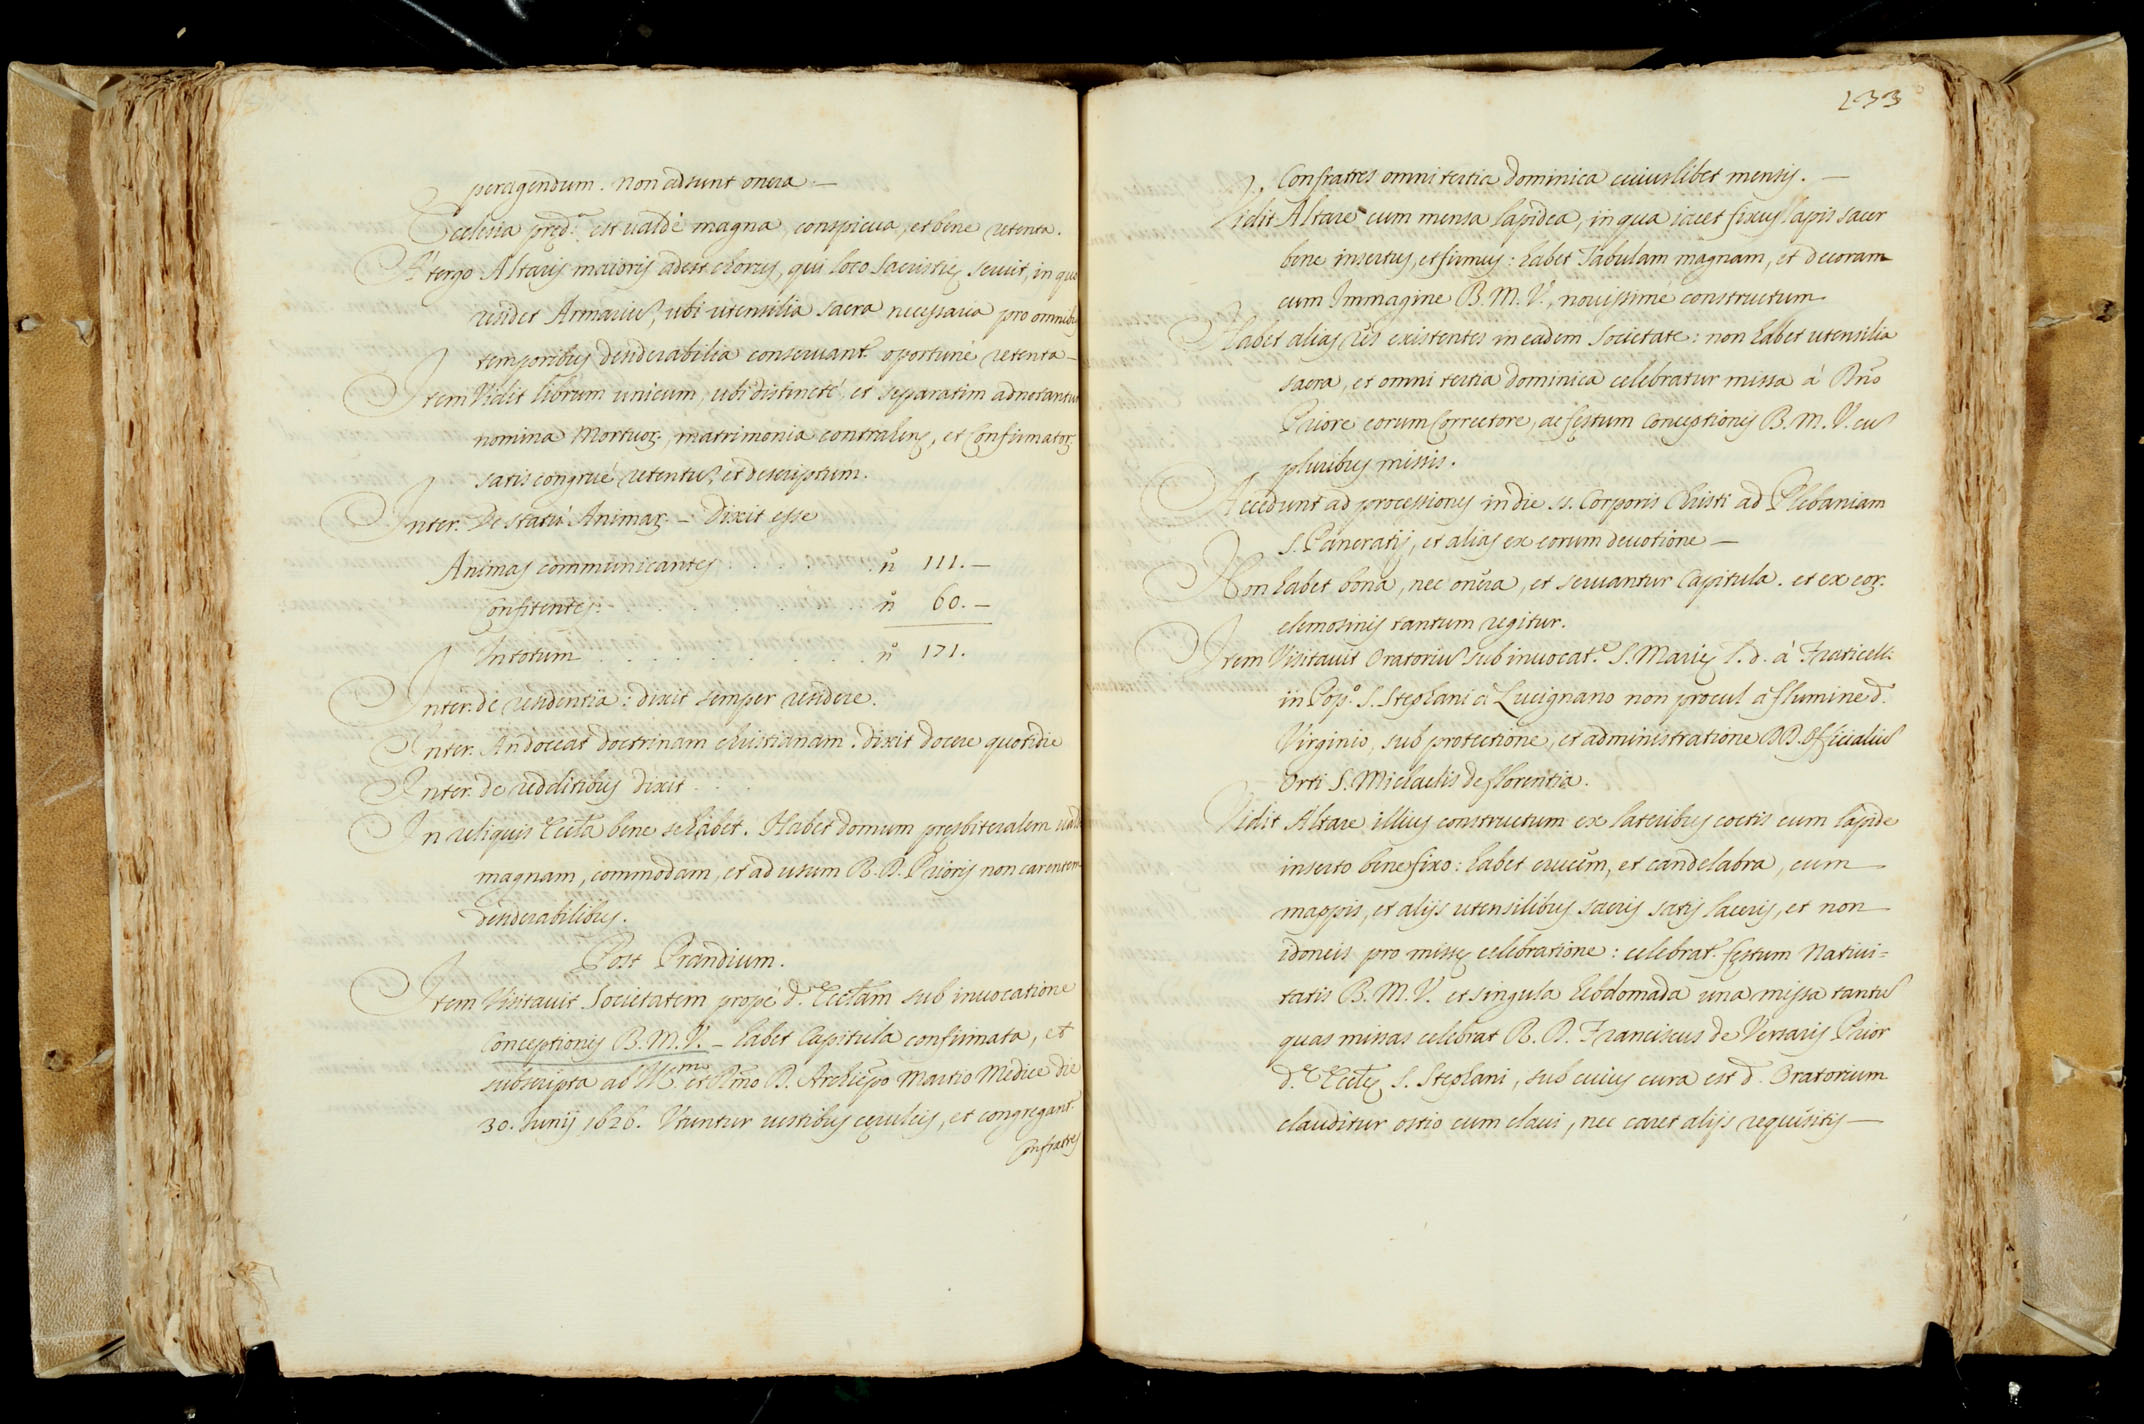 peragendum. Non adsunt onera —
Ecclesia pręd.ª est valdè magna, conspicua, et bene retenta.
A' tergo Altaris maioris adest chorus, qui loco Sacristię servit, in quo
residet Armariũ, ubi utensilia sacra necessaria pro omnibus
temporibus desiderabilia conservant.r oportunè retenta —
Item Vidit librum unicum, ubi distinctè, et separatim adnotantur
nomina Mortuoꝝ, matrimonia contrahens, et Confirmatoꝝ
satis congruè retentũ, et descriptum.
Inter. De statu Animaꝝ — Dixit esse
Animas communicantes . . . . . nº 111. —
Confitentes: . . . . . . . . . . nº 60. —
In totum . . . . . . . . . . nº 171.
Inter. de residentia: dixit semper residere.
Inter. An doceat doctrinam christianam. dixit docere quotidie
Inter. de redditibus dixit . . . .
In reliquis Eccľa bene se habet. Habet domum presbiteralem valde
magnam, commodam, et ad usum R. D. Prioris non carentem
desiderabilibus.
Post Prandium.
Item Visitavit Societatem propè d.ᵃᵐ Eccľam sub invocatione
Conceptionis B. M. V. — habet Capitula confirmata, et
subscripta ab Ill.mo et Rmo D. Archiepõ Martio Medice die
30. Junij 1626. Utuntur vestibus cęruleis, et congregant.r
Confratres
233
Confratres omni tertia Dominica cuiuslibet mensis. —
Vidit Altare cum mensa lapidea, in qua iacet fixus lapis sacer
bene insertus, et firmus: habet Tabulam magnam, et decoram
cum Immagine B. M. V., novissimè constructum
Habet alias res existentes in eadem Societate: non habet utensilia
sacra, et omni tertia dominica celebratur missa à Rño
Priore eorum Correctore, ac festum Conceptionis B. M. V. cũ
pluribus missis.
Accedunt ad processiones in die SS. Corporis Christi ad Plebaniam
S. Pancratij, et alias ex eorum devotione —
Non habet bona, nec onera, et servantur Capitula. et ex eoꝝ
elemosinis tantum regitur.
Item Visitavit Oratoriũ sub invocat.e S. Marię l. d. à Fraticelli
in Pop.º S. Stephani à Lucignano non procul à flumine d.
Virginio, sub protectione, et administratione DD. Officialiũ
Orti S. Michaelis de Florentia.
Vidit Altare illius constructum ex lateribus coctis cum lapide
inserto bene fixo: habet crucem, et candelabra, cum
mappis, et alijs utensilibus sacris satis laceris, et non
idoneis pro missę celebratione: celebrat.r festum Nativi=
tatis B. M. V. et singula hebdomada una missa tantũ
quas missas celebrat R. D. Franciscus de Versaris Prior
d.ę Eccľę S. Stephani, sub cuius cura est d. Oratorium
clauditur ostio cum clavi, nec caret alijs requisitis —